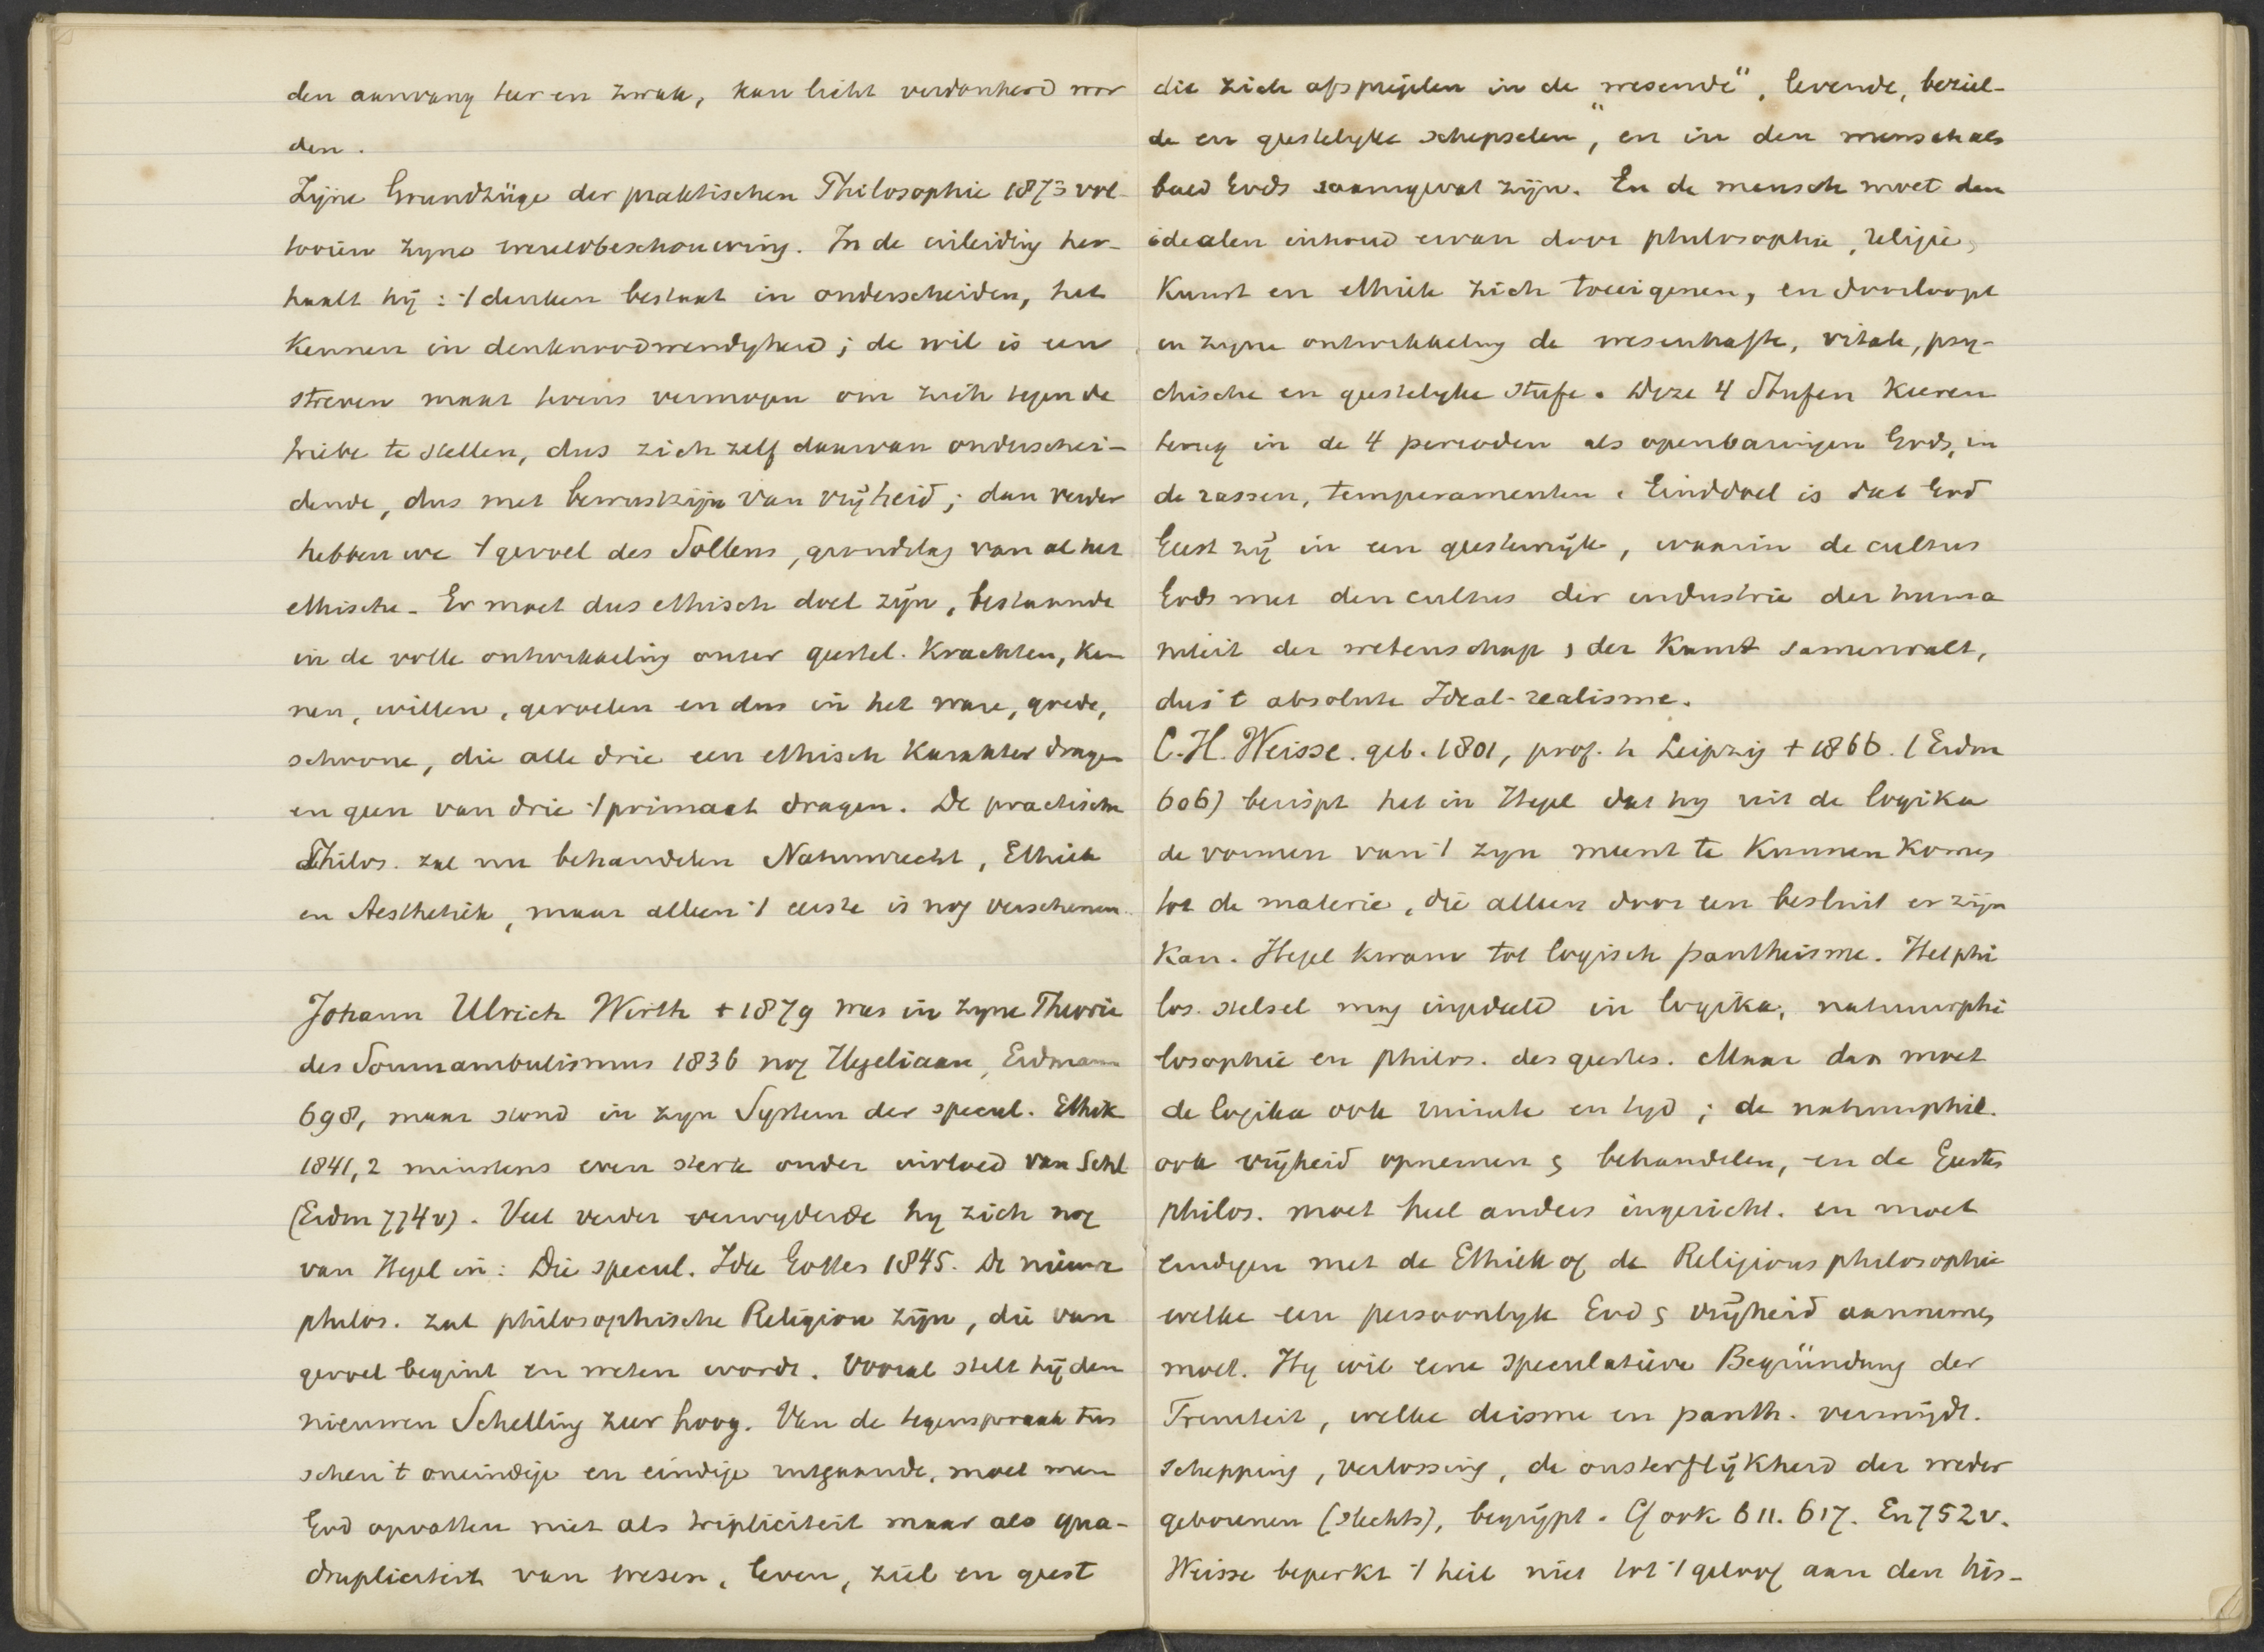 den aanvang teer en zwak, kan licht verdonkerd wor
den.
Zijne Grundzüge der praktischen Philosophie 1873 vol-
tooien zyne wereldbeschouwing. In de inleiding her-
haalt hij: 't denken bestaat in onderscheiden, het
kennen in denknoodwendigheid; de wil is een
streven maar tevens vermogen om zich tegen de
triebe te stellen, dus zich zelf daarvan onderschei-
dende, dus met bewustzijn van vrijheid; dan verder
hebben we 't gevoel des Sollens, grondslag van al het
ethische. Er moet dus ethisch doel zijn, bestaande
in de volle ontwikkeling onzer geestel. krachten, ken
nen, willen, gevoelen en dus in het ware, goede,
schoone, die alle drie een ethisch karakter dragen
en geen van drie 't primaat dragen. De practische
Philos. zal nu behandelen Naturrecht, Ethiek
en Aesthetik, maar alleen 't eerste is nog verschenen.
Johann Ulrich Wirth + 1879 was in zyne Theorie
des Somnambulismus 1836 nog Hegeliaan, Erdmann
698, maar stond in zyn System der specul. Ethik
1841,2 minstens even sterk onder invloed van Schl
(Erdm 774v). Veel verder verwyderde hy zich nog
van Hegel in: Die specul. Idee Gottes 1845. De nieuwe
philos. zal philosophische Religion zijn, die van
gevoel begint en weten wordt. Vooral stelt hij den
nieuwen Schelling zeer hoog. Van de tegenspraak tus
schen 't oneindige en eindige uitgaande, moet men
God opvatten niet als tripliciteit maar als qua-
drupliciteit van wesen, leven, ziel en geest
die zich afspiegelen in de „wesende", levende, beziel-
de en geestelyke schepselen", en in den mensch als
beeld Gods saamgevat zijn. En de mensch moet den
idealen inhoud ervan door philosophie, religie,
Kunst en ethiek zich toeeigenen, en doorloopt
in zyne ontwikkeling de wesenhafte, vitale, psy-
chische en geestelyke stufe. Deze 4 Stufen keeren
terug in de 4 perioden als openbaringen Gods, in
de rassen, temperamenten. Einddoel is dat God
Geest zij in een geestenrijk, waarin de cultus
Gods met den cultus der industrie der huma
niteit der wetenschap, der Kunst samenvalt,
dus 't absolute Ideal-realisme.
C.H. Weisse. geb. 1801, prof. te Leipzig + 1866. (Erdm
606) berispt het in Hegel dat hy uit de logika
de vormen van 't zyn meent te kunnen komen
tot de materie, die alleen door een besluit er zijn
kan. Hegel kwam tot logisch pantheisme. Het phi
los. stelsel mag ingedeeld in logika, natuurphi
losophie en philos. des geestes. Maar dan moet
de logika ook ruimte en tyd; de natuurphil.
ook vrijheid opnemen & behandelen, en de Geestes
philos. moet heel anders ingericht. en moet
eindigen met de Ethiek of de Religions philosophie
welke een persoonlyk God & vrijheid aannemen
moet. Hy wil eene speculatieve Begründung der
Treniteit, welke deisme en panth. vermijdt.
schepping, verlossing, de onsterflijkheid der weder
geborenen (slechts), begrijpt. Cf ook 611. 617. En 752v.
Weisse beperkt 't heil niet tot 't geloof aan den his-